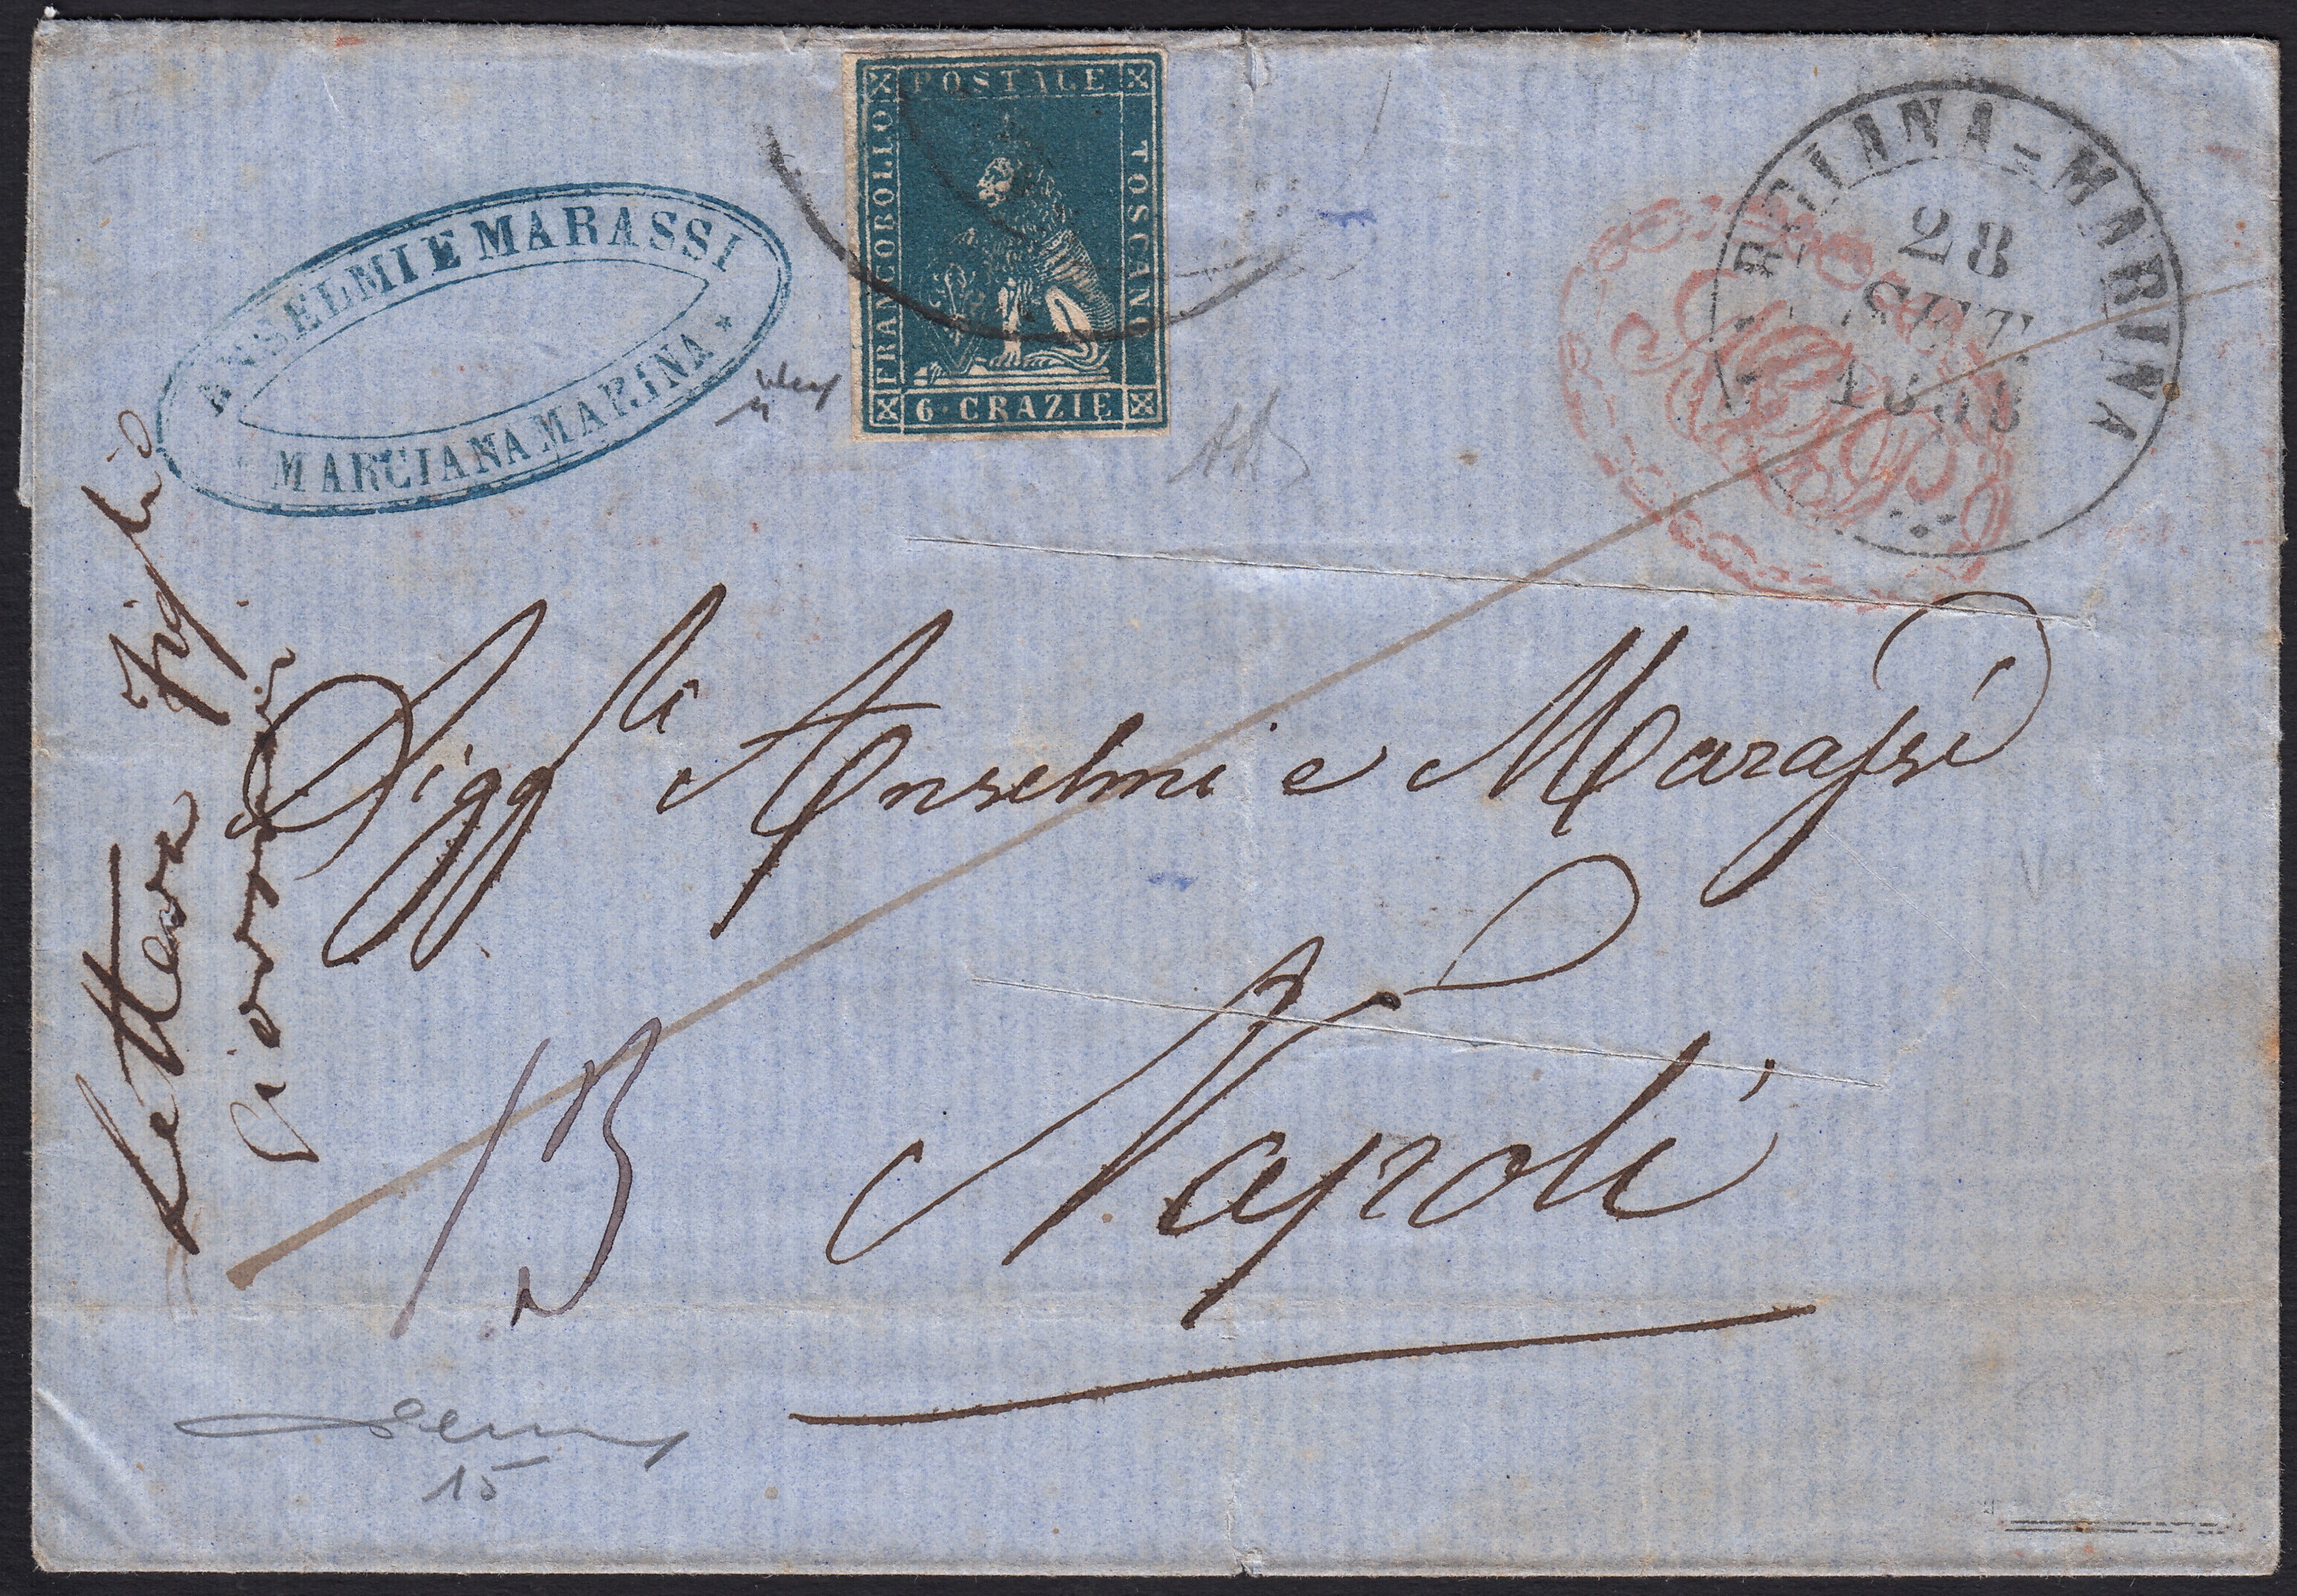 POSTALE
FRANCOBOLLO
TOSCANO
6·CRAZIE
ANSELMI E MARASSI
MARCIANA MARINA *
RCIANA=MARINA
28
SET.
1858
Lettera
Sigg.li Anselmi e Marassi
13
Napoli
15